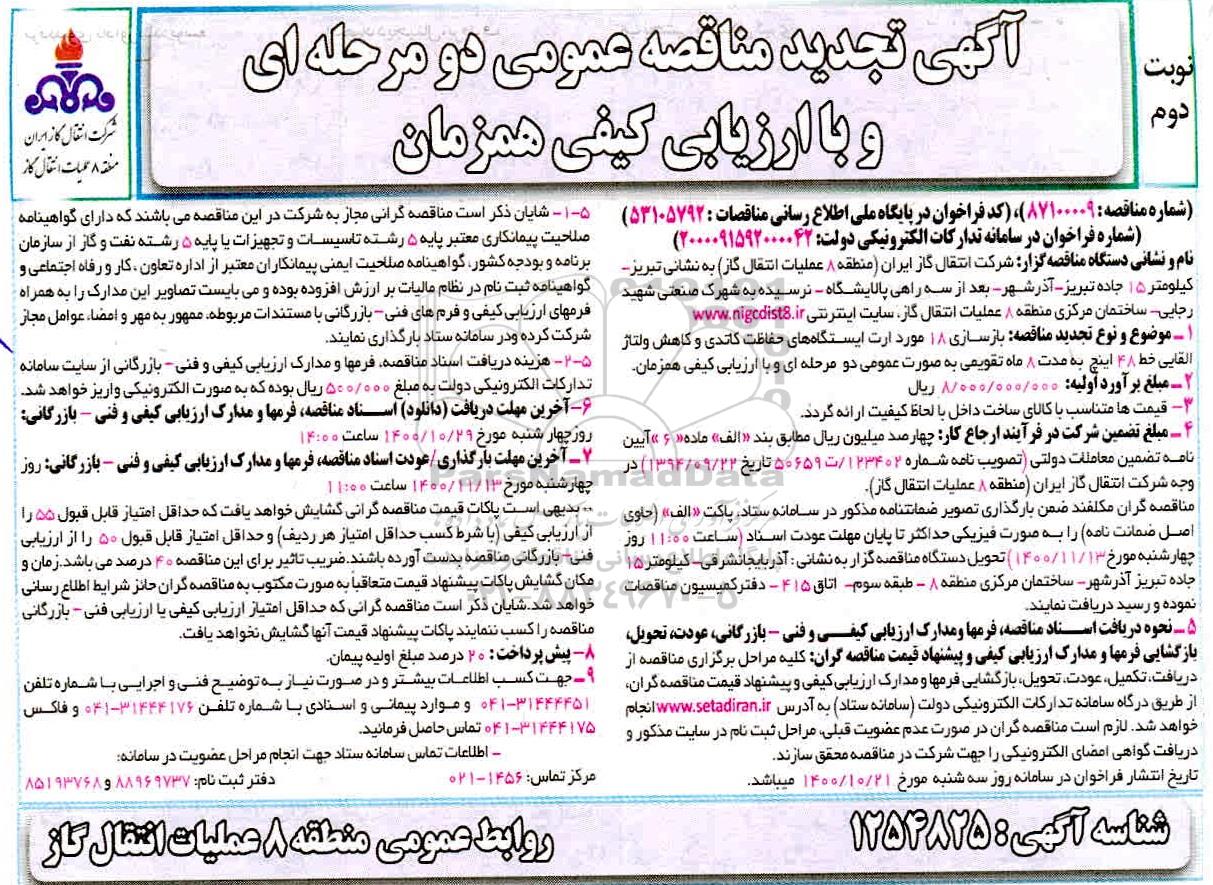 نوبت
دوم
آگهی تجدید مناقصه عمومی دو مرحله ای
و با ارزیابی کیفی همزمان
شرکت انتقال گاز ایران
منطقه ۸ عملیات انتقال گاز
(شماره مناقصه: ۸۷۱۰۰۰۰۹)، (کد فراخوان در پایگاه ملی اطلاع رسانی مناقصات: ۵۳۱۰۵۷۹۲)
(شماره فراخوان در سامانه تدارکات الکترونیکی دولت: ۲۰۰۰۰۹۱۵۹۲۰۰۰۰۴۲)
نام و نشانی دستگاه مناقصه گزار: شرکت انتقال گاز ایران (منطقه ۸ عملیات انتقال گاز) به نشانی تبریز-
کیلومتر ۱۵ جاده تبریز-آذرشهر- بعد از سه راهی پالایشگاه - نرسیده به شهرک صنعتی شهید
رجایی- ساختمان مرکزی منطقه ۸ عملیات انتقال گاز. سایت اینترنتی www.nigcdist8.ir
۱- موضوع و نوع تجدید مناقصه: بازسازی ۱۸ مورد ارت ایستگاه‌های حفاظت کاتدی و کاهش ولتاژ
القایی خط ۴۸ اینچ به مدت ۸ ماه تقویمی به صورت عمومی دو مرحله ای و با ارزیابی کیفی همزمان.
۲- مبلغ برآورد اولیه: ۸/۰۰۰/۰۰۰/۰۰۰ ریال
۳- قیمت ها متناسب با کالای ساخت داخل با لحاظ کیفیت ارائه گردد.
۴- مبلغ تضمین شرکت در فرآیند ارجاع کار: چهارصد میلیون ریال مطابق بند «الف» ماده «۶» آیین
نامه تضمین معاملات دولتی (تصویب نامه شماره ۱۲۳۴۰۲/ت ۵۰۶۵۹ تاریخ ۱۳۹۴/۰۹/۲۲) در
وجه شرکت انتقال گاز ایران (منطقه ۸ عملیات انتقال گاز).
مناقصه گران مکلفند ضمن بارگذاری تصویر ضمانتنامه مذکور در سامانه ستاد، پاکت «الف» (حاوی
اصل ضمانت نامه) را به صورت فیزیکی حداکثر تا پایان مهلت عودت اسناد (ساعت ۱۱:۰۰ روز
چهارشنبه مورخ ۱۴۰۰/۱۱/۱۳) تحویل دستگاه مناقصه گزار به نشانی: آذربایجانشرقی-کیلومتر ۱۵
جاده تبریز آذرشهر- ساختمان مرکزی منطقه ۸ - طبقه سوم- اتاق ۴۱۵ - دفتر کمیسیون مناقصات
نموده و رسید دریافت نمایند.
۵- نحوه دریافت اسناد مناقصه، فرمها ومدارک ارزیابی کیفی و فنی - بازرگانی، عودت، تحویل،
بازگشایی فرمها و مدارک ارزیابی کیفی و پیشنهاد قیمت مناقصه گران: کلیه مراحل برگزاری مناقصه از
دریافت، تکمیل، عودت، تحویل، بازگشایی فرمها و مدارک ارزیابی کیفی و پیشنهاد قیمت مناقصه گران،
از طریق درگاه سامانه تدارکات الکترونیکی دولت (سامانه ستاد) به آدرس www.setadiran.ir انجام
خواهد شد. لازم است مناقصه گران در صورت عدم عضویت قبلی، مراحل ثبت نام در سایت مذکور و
دریافت گواهی امضای الکترونیکی را جهت شرکت در مناقصه محقق سازند.
تاریخ انتشار فراخوان در سامانه روز سه شنبه مورخ ۱۴۰۰/۱۰/۲۱ میباشد.
۵-۱- شایان ذکر است مناقصه گرانی مجاز به شرکت در این مناقصه می باشند که دارای گواهینامه
صلاحیت پیمانکاری معتبر پایه ۵ رشته تاسیسات و تجهیزات یا پایه ۵ رشته نفت و گاز از سازمان
برنامه و بودجه کشور، گواهینامه صلاحیت ایمنی پیمانکاران معتبر از اداره تعاون ، کار و رفاه اجتماعی و
گواهینامه ثبت نام در نظام مالیات بر ارزش افزوده بوده و می بایست تصاویر این مدارک را به همراه
فرمهای ارزیابی کیفی و فرم های فنی - بازرگانی با مستندات مربوطه، ممهور به مهر و امضاء عوامل مجاز
شرکت کرده ودر سامانه ستاد بارگذاری نمایند.
۵-۲- هزینه دریافت اسناد مناقصه، فرمها و مدارک ارزیابی کیفی و فنی - بازرگانی از سایت سامانه
تدارکات الکترونیکی دولت به مبلغ ۵۰۰/۰۰۰ ریال بوده که به صورت الکترونیکی واریز خواهد شد.
۶- آخرین مهلت دریافت (دانلود) اسناد مناقصه، فرمها و مدارک ارزیابی کیفی و فنی - بازرگانی:
روز چهار شنبه مورخ ۱۴۰۰/۱۰/۲۹ ساعت ۱۴:۰۰
۷- آخرین مهلت بارگذاری/عودت اسناد مناقصه، فرمها و مدارک ارزیابی کیفی و فنی - بازرگانی: روز
چهارشنبه مورخ ۱۴۰۰/۱۱/۱۳ ساعت ۱۱:۰۰
-- بدیهی است پاکات قیمت مناقصه گرانی گشایش خواهد یافت که حداقل امتیاز قابل قبول ۵۵ را
از ارزیابی کیفی (با شرط کسب حداقل امتیاز هر ردیف) و حداقل امتیاز قابل قبول ۵۰ را از ارزیابی
فنی- بازرگانی مناقصه بدست آورده باشند.ضریب تاثیر برای این مناقصه ۴۰ درصد می باشد.زمان و
مکان گشایش پاکات پیشنهاد قیمت متعاقباً به صورت مکتوب به مناقصه گران حائز شرایط اطلاع رسانی
خواهد شد.شایان ذکر است مناقصه گرانی که حداقل امتیاز ارزیابی کیفی یا ارزیابی فنی - بازرگانی
مناقصه را کسب ننمایند پاکات پیشنهاد قیمت آنها گشایش نخواهد یافت.
۸- پیش پرداخت: ۲۰ درصد مبلغ اولیه پیمان.
۹- جهت کسب اطلاعات بیشتر و در صورت نیاز به توضیح فنی و اجرایی با شماره تلفن
۰۴۱-۳۱۴۴۴۴۵۱ و موارد پیمانی و اسنادی با شماره تلفن ۰۴۱-۳۱۴۴۴۱۷۶ و فاکس
۰۴۱-۳۱۴۴۴۱۷۵ تماس حاصل فرمائید.
- اطلاعات تماس سامانه ستاد جهت انجام مراحل عضویت در سامانه:
مرکز تماس: ۱۴۵۶-۰۲۱ دفتر ثبت نام: ۸۸۹۶۹۷۳۷ و ۸۵۱۹۳۷۶۸
ParsNamadData
۰۲۱-۸۸۳۴۹۶۷۰-۵
شناسه آگهی: ۱۲۵۴۸۲۵
روابط عمومی منطقه ۸ عملیات انتقال گاز